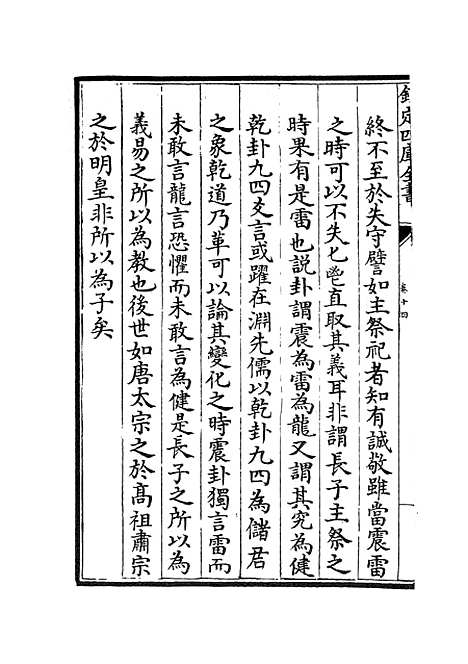 欽定四庫全書
卷十四
終不至於失守譬如主祭祀者知有誠敬雖當震雷
之時可以不失匕鬯直取其義耳非謂長子主祭之
時果有是雷也說卦謂震為雷為龍又謂其究為健
乾卦九四爻言或躍在淵先儒以乾卦九四為儲君
之象乾道乃革可以論其變化之時震卦獨言雷而
未敢言龍言恐懼而未敢言為健是長子之所以為
義易之所以為教也後世如唐太宗之於髙祖肅宗
之於明皇非所以為子矣